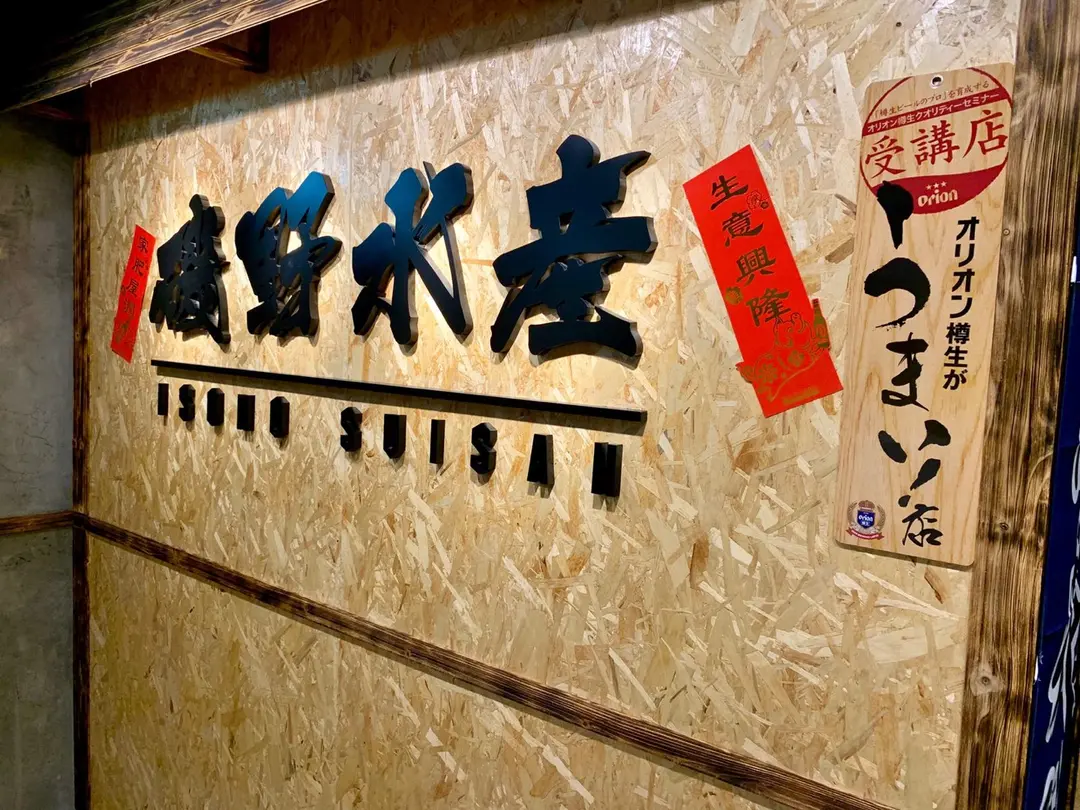 磯野水産
ISONO SUISAN
家肥屋潤
生意興隆
「樽生ビールのプロ」を育成する
オリオン樽生クオリティーセミナー
受講店
orion
オリオン樽生が
うまい店
orion